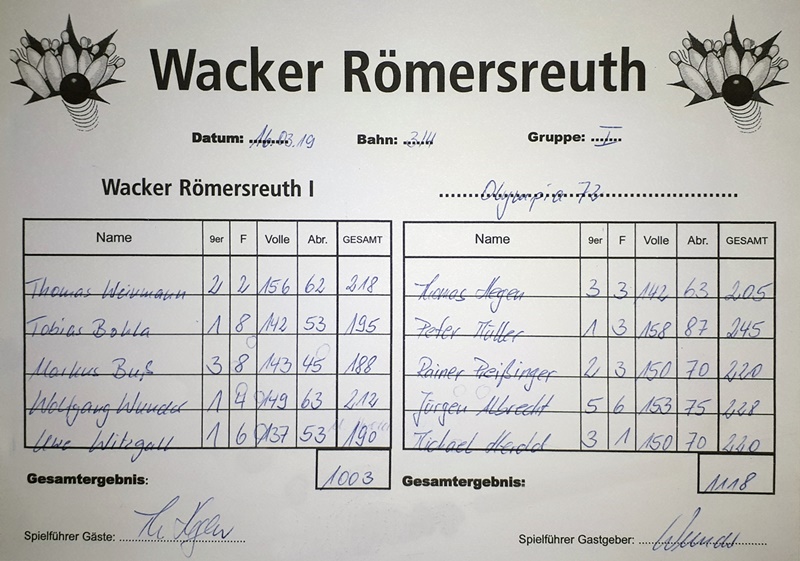 Wacker Römersreuth
Datum: 16.03.19 Bahn: 3/4 Gruppe: I
Wacker Römersreuth I Olympia 72
Name 9er F Volle Abr. GESAMT Name 9er F Volle Abr. GESAMT
Thomas Weinmann 2 2 156 62 218 Thomas Hegen 3 3 142 63 205
Tobias Bohla 1 8 142 53 195 Peter Müller 1 3 158 87 245
Markus Buß 3 8 143 45 188 Rainer Preißinger 2 3 150 70 220
Wolfgang Wunder 1 4 149 63 212 Jürgen Albrecht 5 6 153 75 228
Uwe Witzgall 1 6 137 53 190 Michael Herold 3 1 150 70 220
Gesamtergebnis: 1003 Gesamtergebnis: 1118
Spielführer Gäste: Th. Hegen Spielführer Gastgeber: Wunder